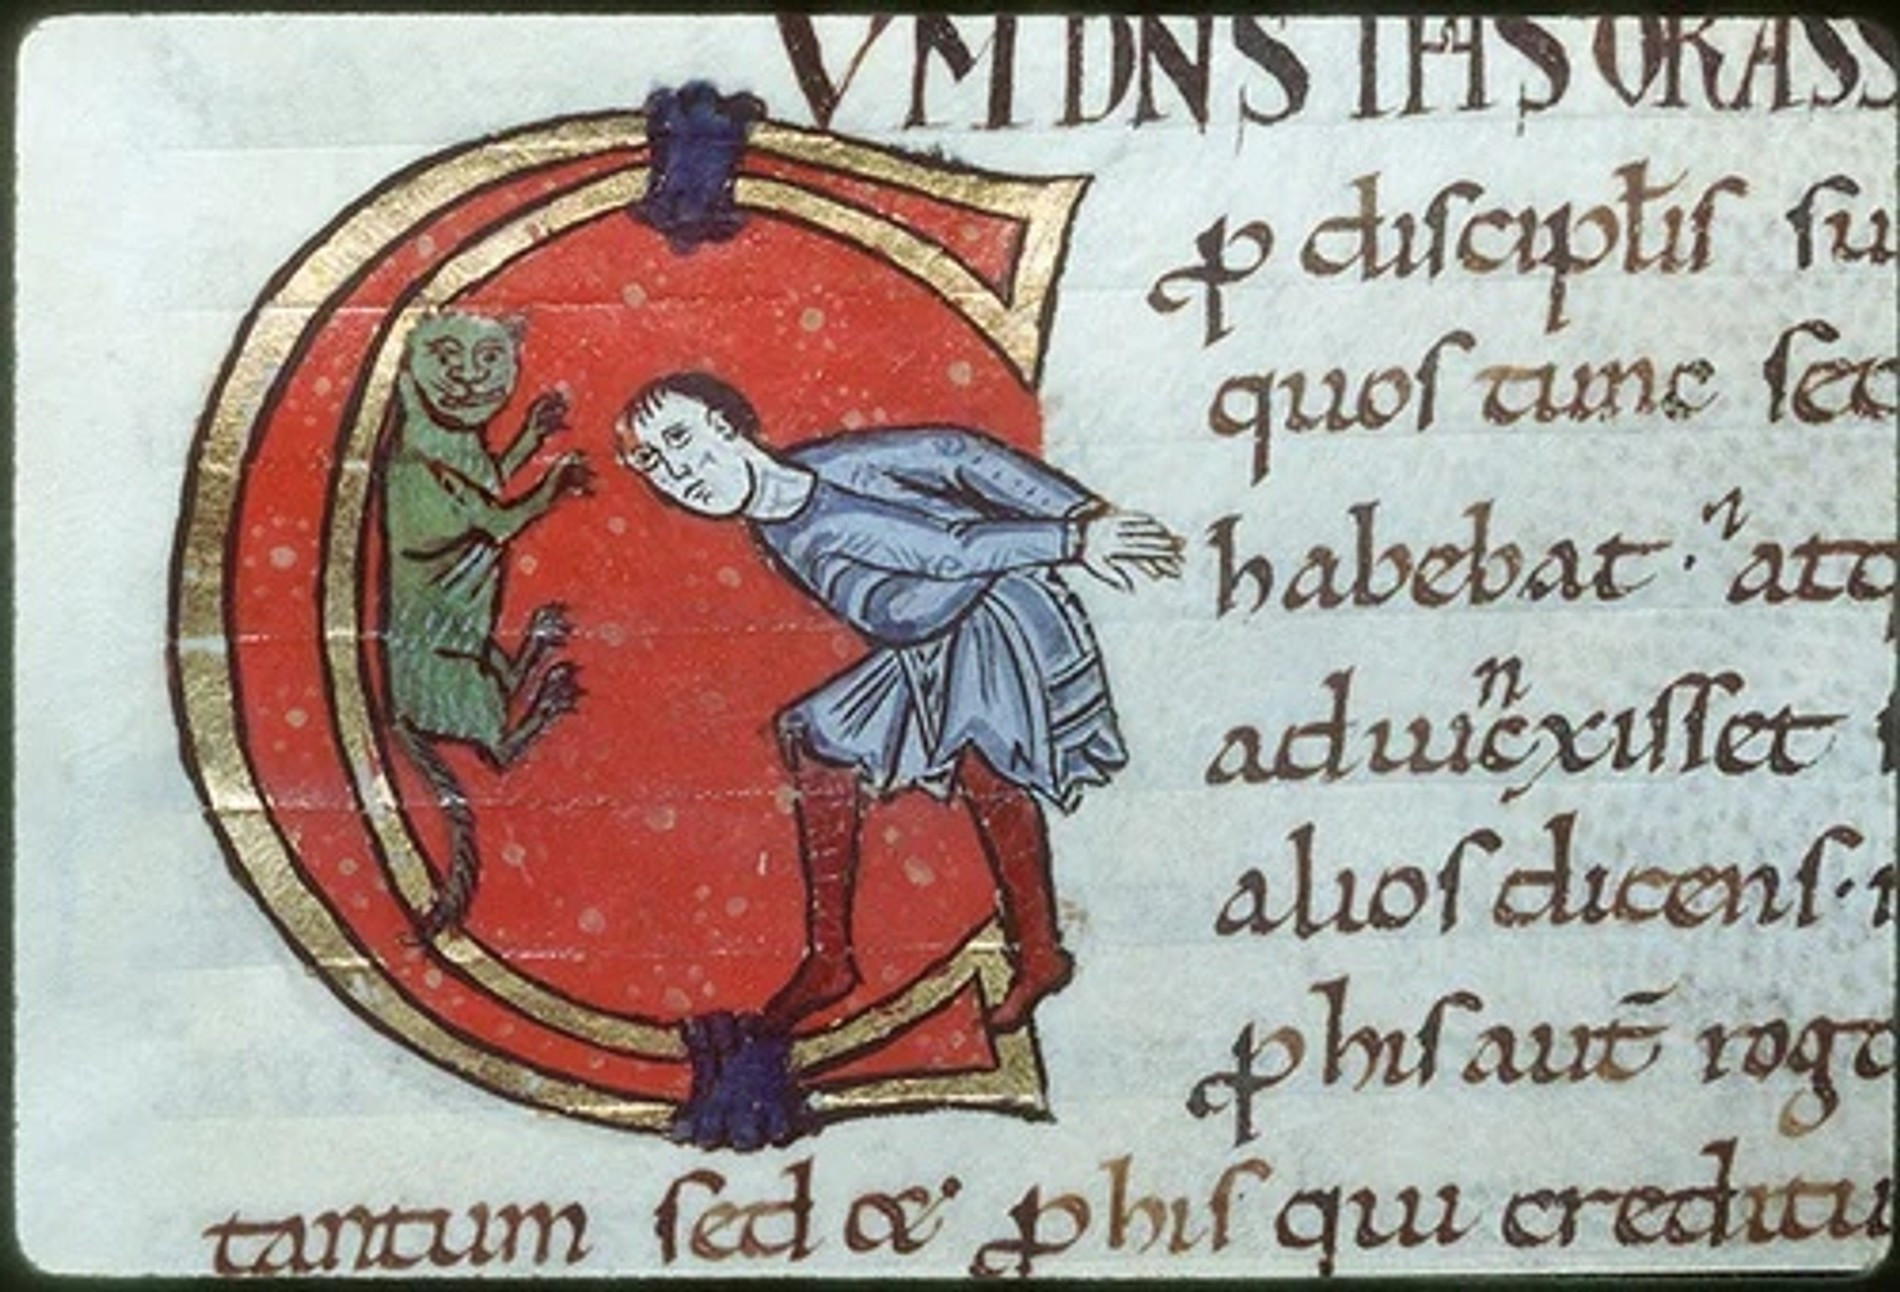 CUM DNS IHS ORASS
p discipłis su
quos tunc sec
habebat · atq
aduicxisset
alios dicens ·
p his aut̄ roga
tantum sed & p his qui creditu